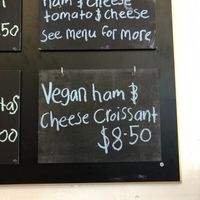 ham & cheese
tomato & cheese
See menu for more,
50
Vegan ham &
Cheese Croissant
$8.50
00